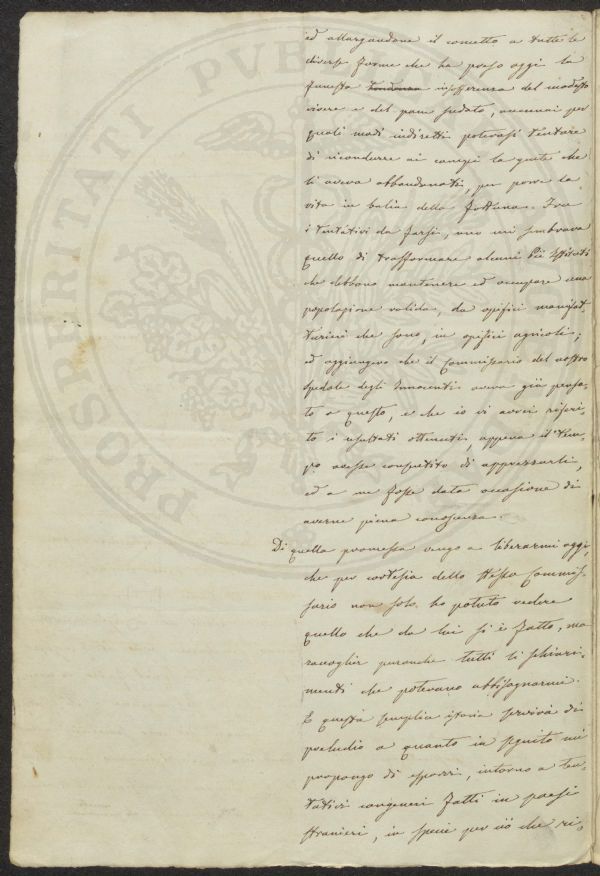 ed allargandone il concetto a tutte le
diverse forme che ha preso oggi la
funesta tendenza insofferenza del modesto
vivere e del pane sudato, accennai per
quali modi indiretti potevasi tentare
di ricondurre ai campi la gente che
li aveva abbandonati, per porre la
vita in balia della fortuna. Fra
i tentativi da farsi, uno mi sembrava
quello di trasformare alcuni Pii Istituti
che debbono mantenere ed occupare una
popolazione valida, da opifici manifat-
turieri che sono, in opifici agricoli;
ed aggiungevo che il Commissario del nostro
Spedale degli Innocenti aveva già pensa-
to a questo, e che io vi avrei riferi-
to i resultati ottenuti, appena il tem-
po avesse compertito di apprezzarli,
ed a me fosse data occasione di
averne piena conoscenza.
Di quella promessa vengo a liberarmi oggi,
che per cortesia dello stesso Commis-
sario non solo ho potuto vedere
quello che da lui si è fatto, ma
raccoglier puranche tutti li schiari-
menti che potevano abbisognarmi.
E questa semplice istoria servirà di
preludio a quanto in seguito mi
propongo di esporvi, intorno a ten-
tativi congeneri fatti in paesi
stranieri, in specie per ciò che ri-
PROSPERITATI PVBLICAE